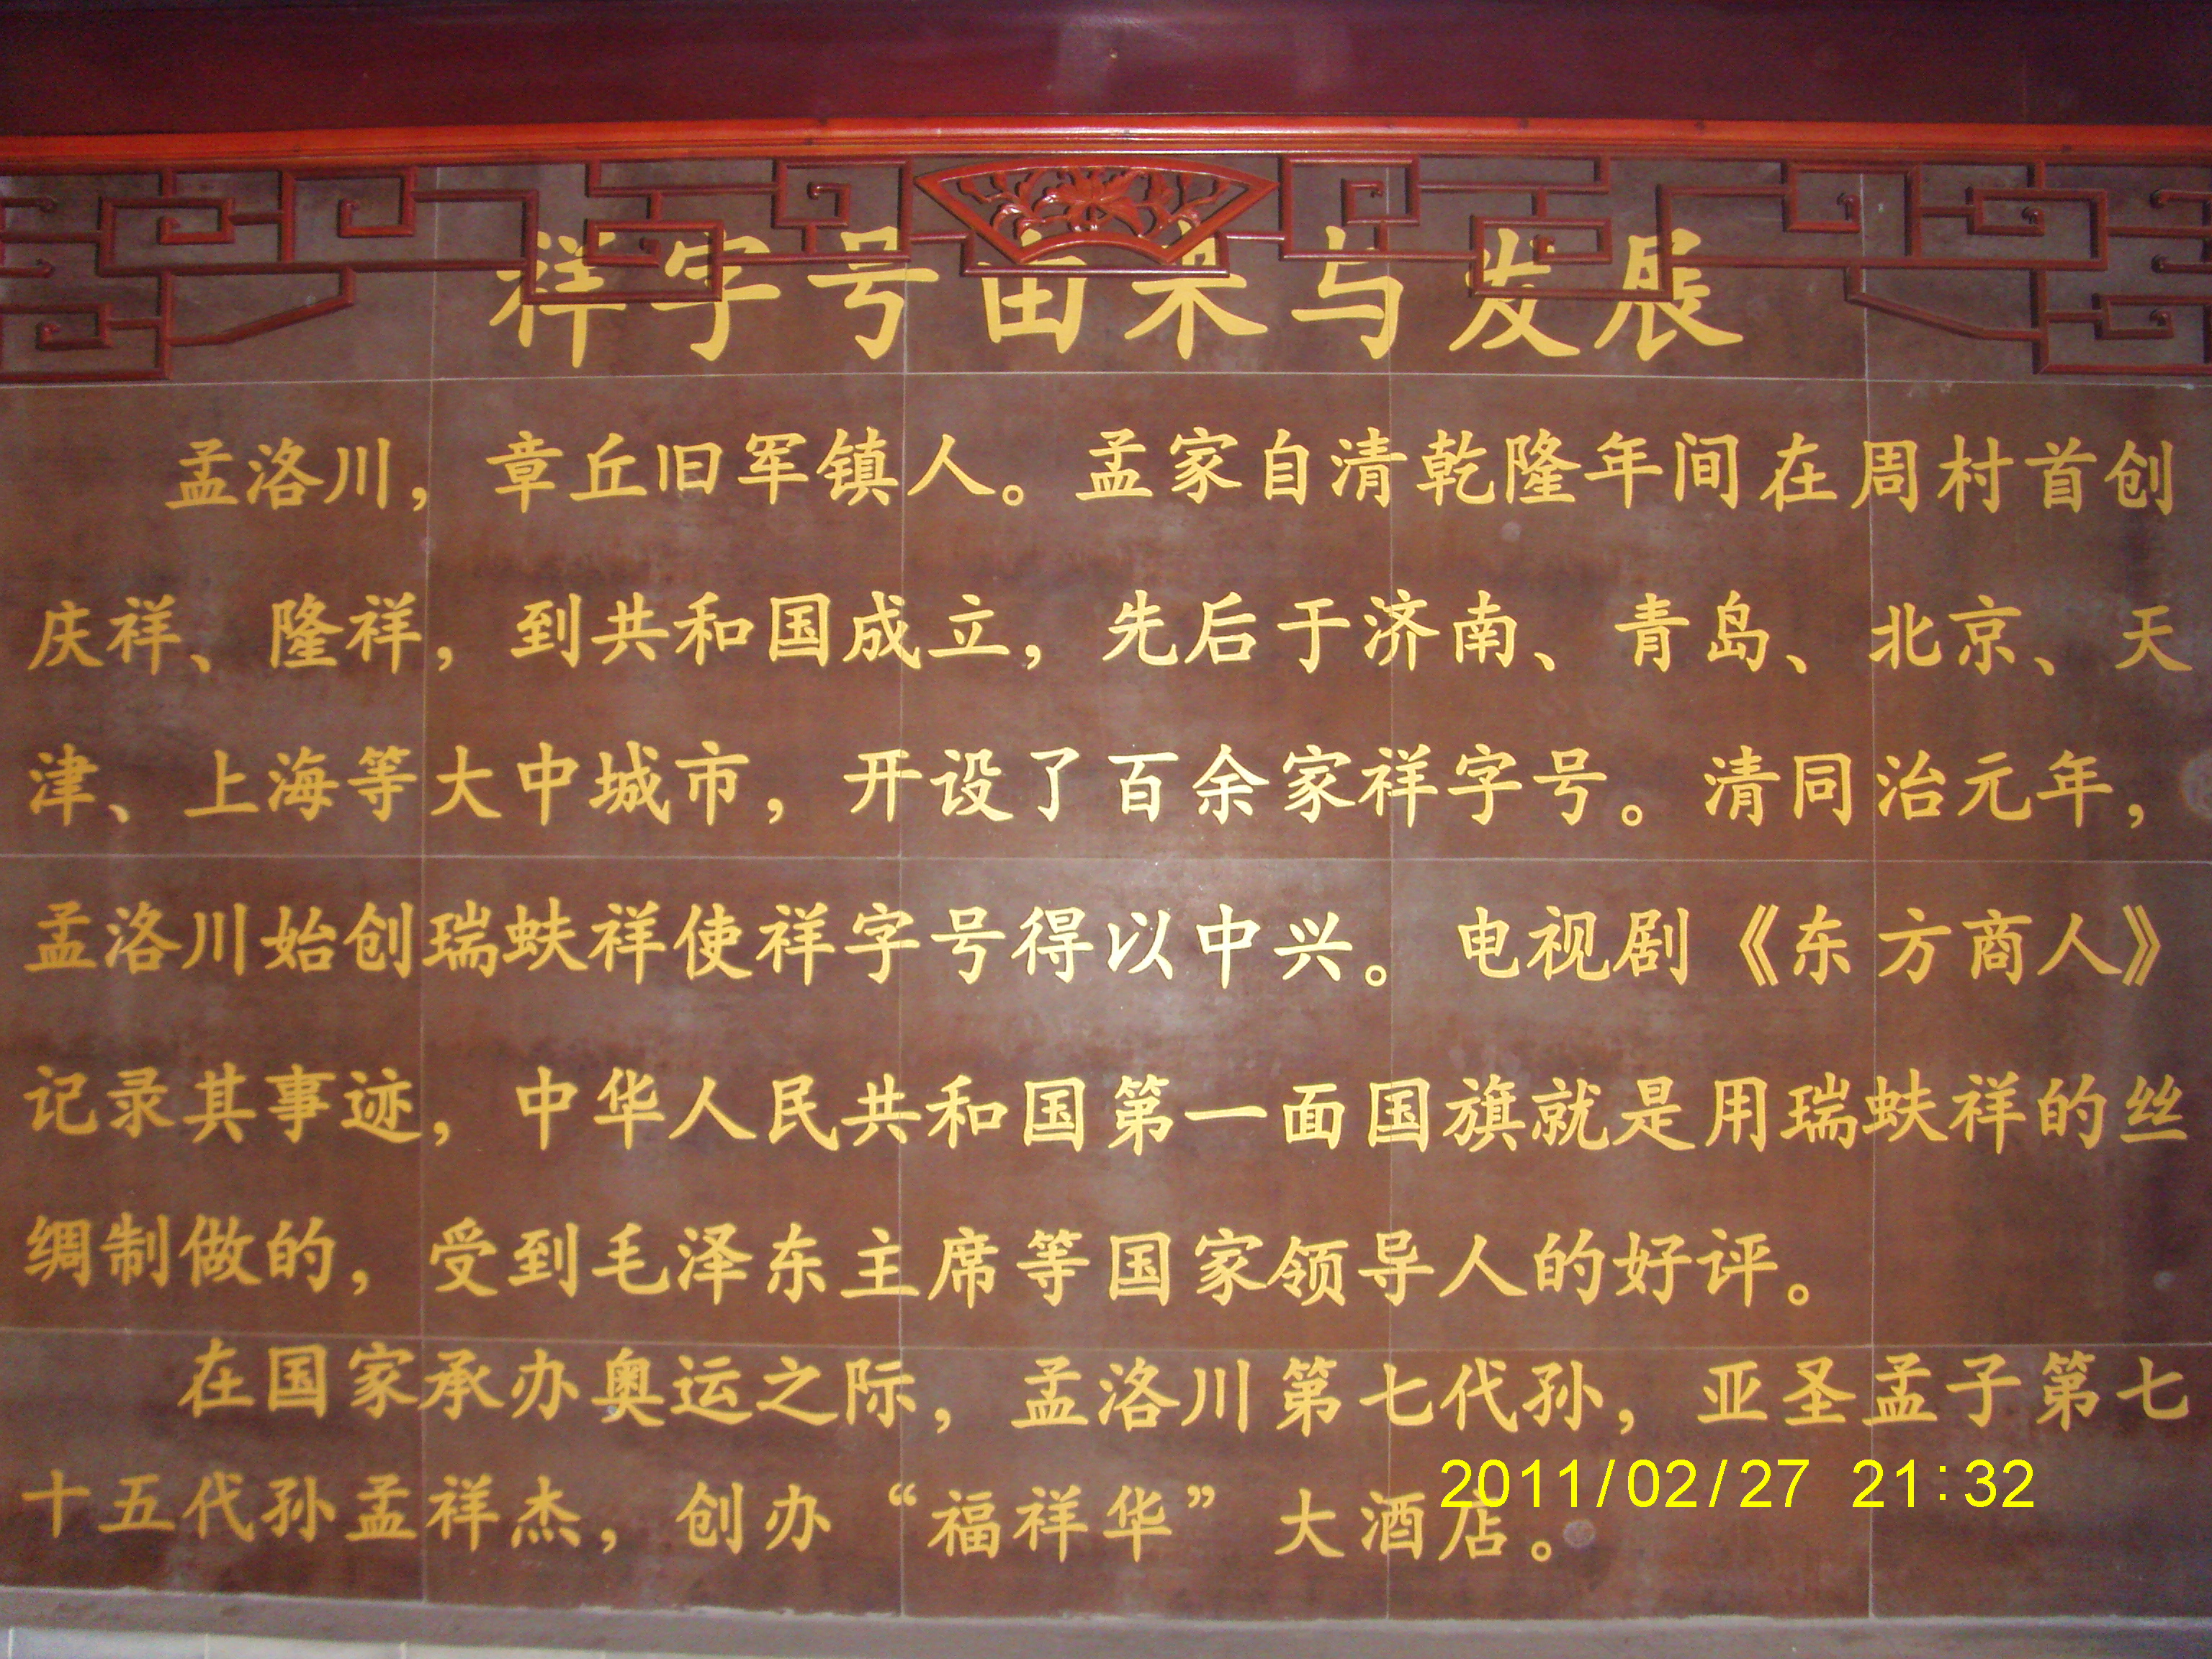 祥字号由来与发展
孟洛川，章丘旧军镇人。孟家自清乾隆年间在周村首创
庆祥、隆祥，到共和国成立，先后于济南、青岛、北京、天
津、上海等大中城市，开设了百余家祥字号。清同治元年，
孟洛川始创瑞蚨祥使祥字号得以中兴。电视剧《东方商人》
记录其事迹，中华人民共和国第一面国旗就是用瑞蚨祥的丝
绸制做的，受到毛泽东主席等国家领导人的好评。
在国家承办奥运之际，孟洛川第七代孙，亚圣孟子第七
十五代孙孟祥杰，创办“福祥华”大酒店。
2011/02/27 21:32